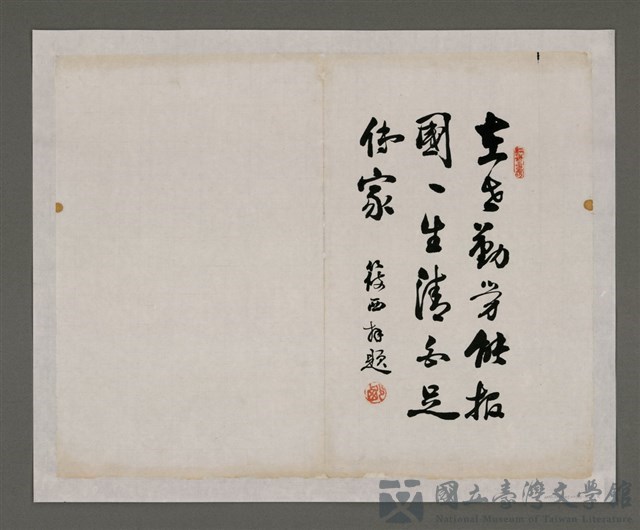 在世勤勞能報
國一生清白足
傳家
筱西題
國立臺灣文學館
National Museum of Taiwan Literature